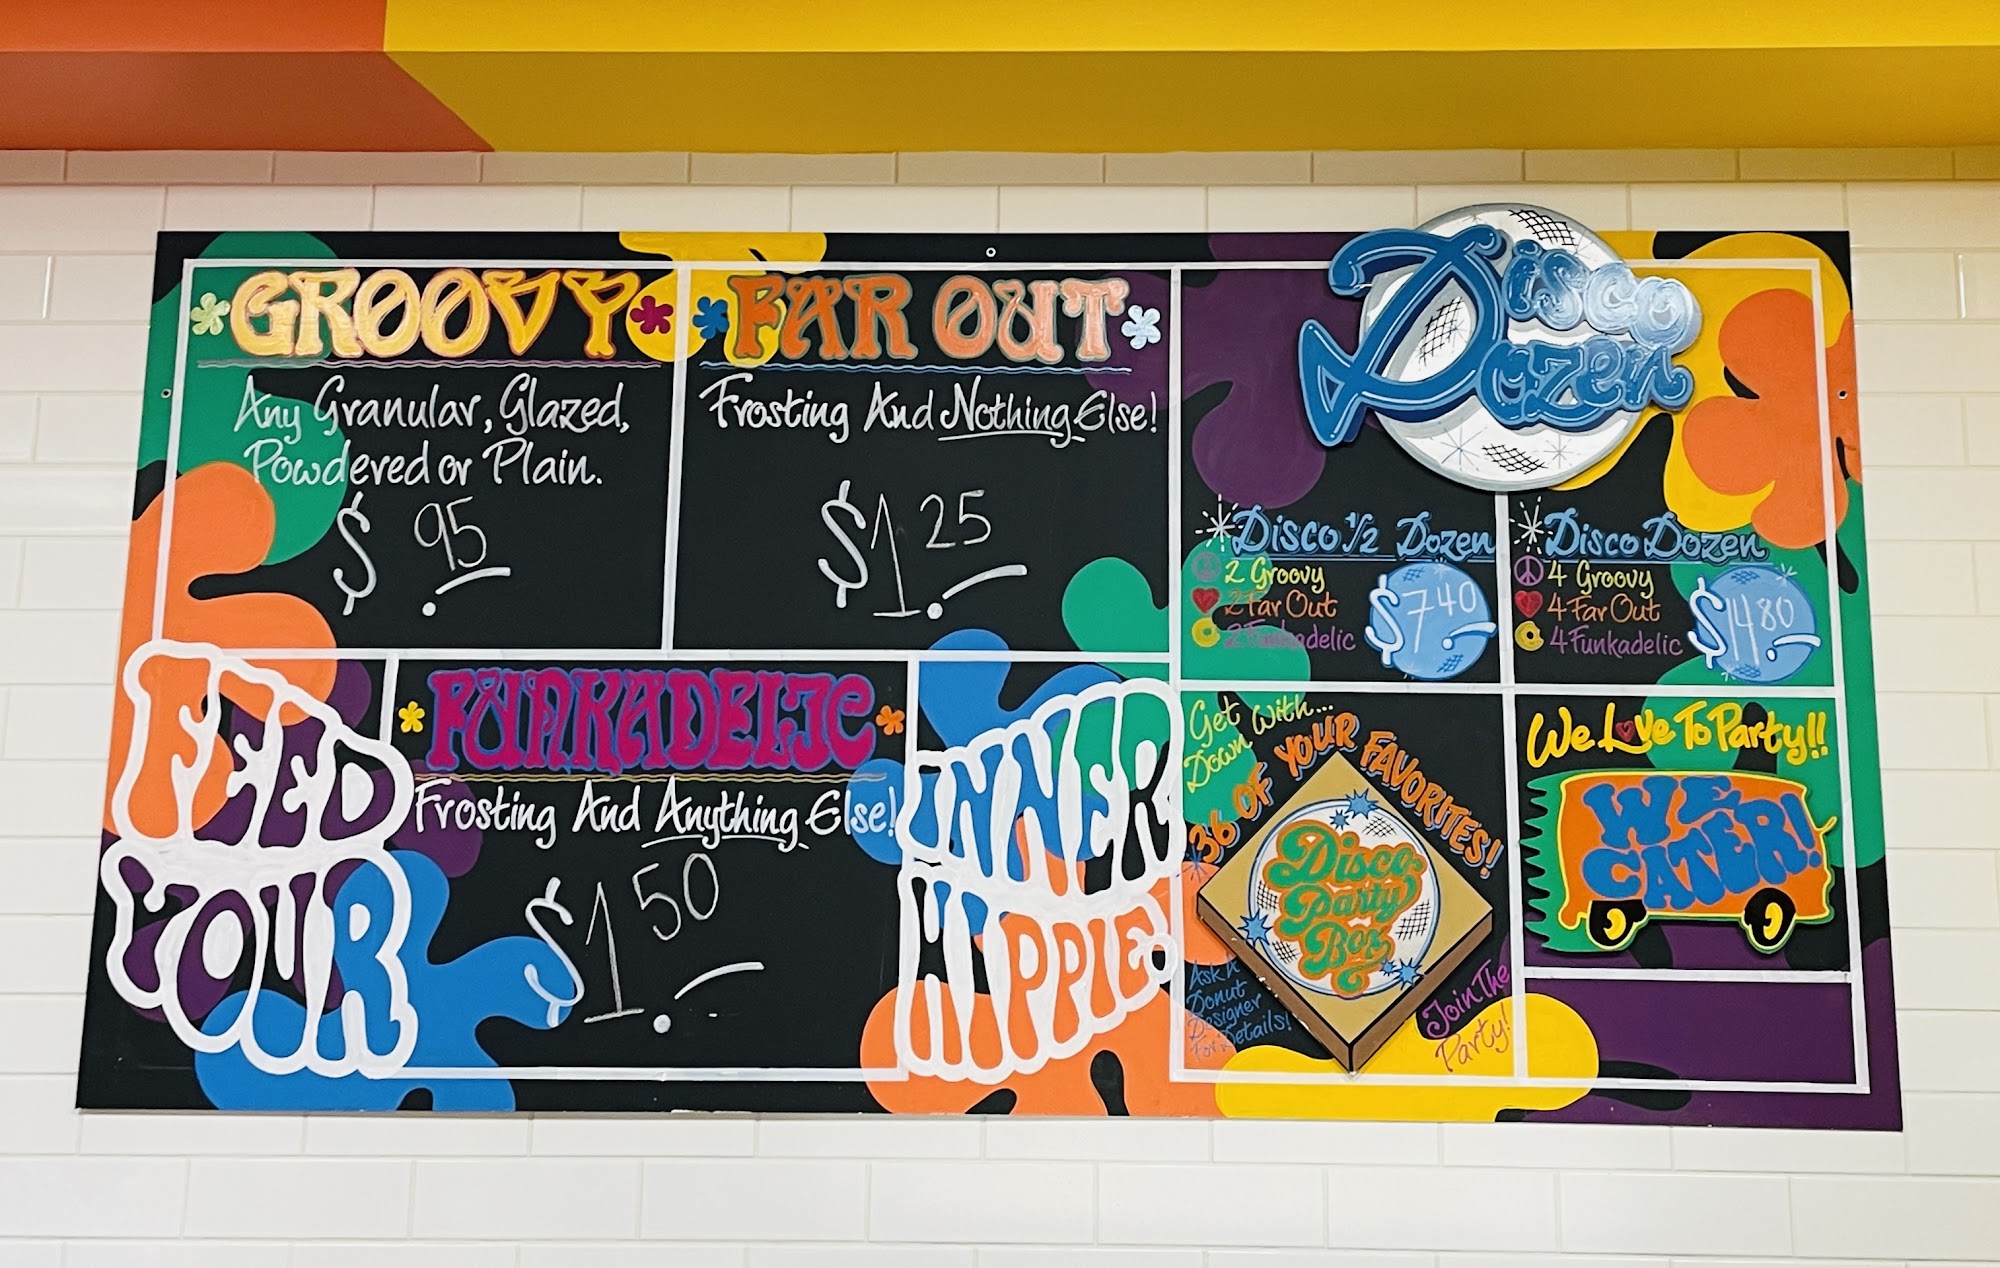 GROOVY
Any Granular, Glazed,
Powdered or Plain.
$ .95
FAR OUT
Frosting And Nothing Else!
$1.25
FEED
YOUR
INNER
HIPPIE.
FUNKADELIC
Frosting And Anything Else!
$1.50
Disco
Dozen
Disco 1/2 Dozen
2 Groovy
2 Far Out
2 Funkadelic
$7.40
Disco Dozen
4 Groovy
4 Far Out
4 Funkadelic
$14.80
Get
Down With...
36 OF YOUR FAVORITES!
Disco
Party
Box
Ask A
Donut
Designer
For Details!
Join The
Party!
We Love To Party!!
WE
CATER!